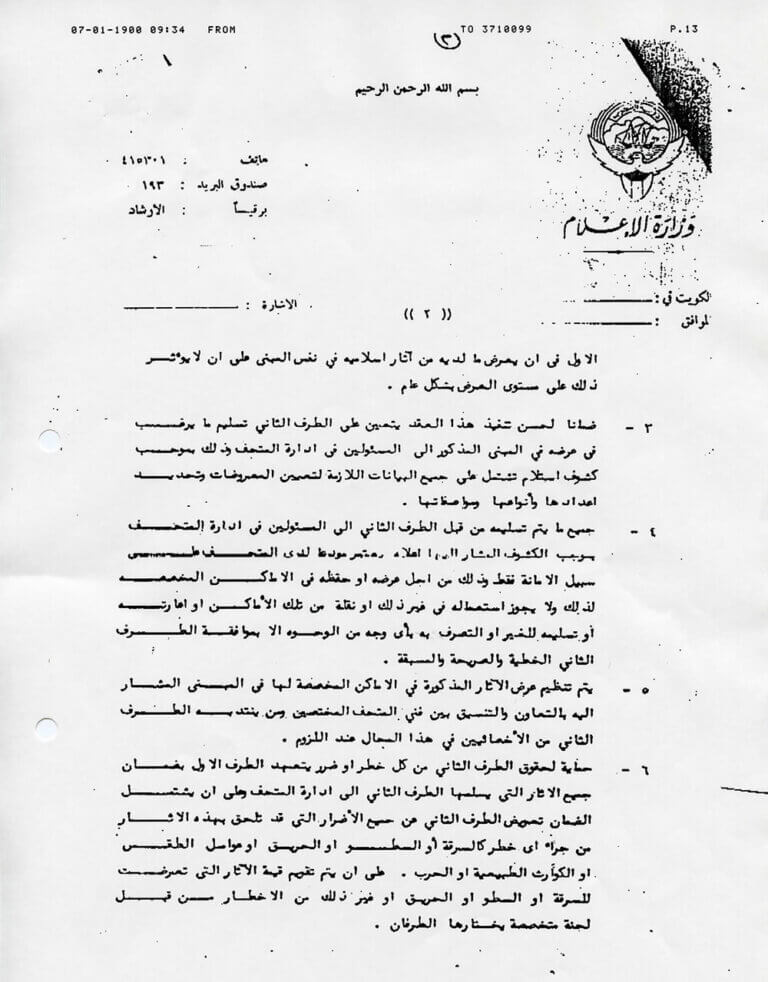 07-01-1900 09:34 FROM TO 3710099 P.13
(٢)
١
بسم الله الرحمن الرحيم
هاتف : ٤١٥٣٠١
صندوق البريد : ١٩٣
برقيـاً : الارشاد
وزارة الإعلام
الكويت في :
الموافق :
(( ٢ ))
الاشارة :
الاول فى ان يعرض ما لديه من آثار اسلاميه في نفس المبنى على ان لا يؤثـــر
ذلك على مستوى العرض بشكل عام .
٣ - ضمانا لحسن تنفيذ هذا العقد يتعين على الطرف الثاني تسليم ما يرغـــب
فى عرضه في المبنى المذكور الى المسئولين في ادارة المتحف وذلك بموجــب
كشوف استلام تشتمل على جميع البيانات اللازمة لتعيين المعروضات وتحديــد
اعدادها وأنواعها ومواصفاتها .
٤ - جميع ما يتم تسليمه من قبل الطرف الثاني الى المسئولين فى ادارة المتحــف
بموجب الكشوف المشار اليها اعلاه يعتبر مودعا لدى المتحــف علـــى
سبيل الامانة فقط وذلك من اجل عرضه او حفظه فى الاماكــن المخصصه
لذلك ولا يجوز استعماله فى غير ذلك او نقلة من تلك الأماكــن او اعارتــه
أو تسليمه للغير او التصرف به بأى وجه من الوجوه الا بموافقــة الطــرف
الثاني الخطية والصريحة والمسبقة .
٥ - يتم تنظيم عرض الآثار المذكورة في الاماكن المخصصة لها فى المبــنى المشــار
اليه بالتعاون والتنسيق بين فنيي المتحف المختصين ومن ينتدبــه الطــرف
الثاني من الأخصائيين في هذا المجال عند اللزوم .
٦ - حماية لحقوق الطرف الثاني من كل خطر او ضرر يتعهد الطرف الاول بضمــان
جميع الاثار التي يسلمها الطرف الثاني الى ادارة المتحف وعلى ان يشتمــل
الضمان تعويض الطرف الثاني عن جميع الأضرار التي قد تلحق بهذه الاثــار
من جراء اى خطر كالسرقة أو السطــو او الحريــق او عوامل الطقــس
او الكوارث الطبيعية او الحرب . على ان يتم تقويم قيمة الآثار التى تعرضــت
للسرقة او السطو او الحريق او غير ذلك من الاخطــار مــن قبــل
لجنة متخصصة يختارها الطرفان .